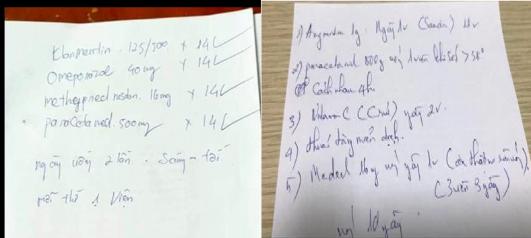 Klamentin. 125/500 x 14
Omeprazol 40mg x 14
methylpred nisolon. 16mg x 14
paracetamol. 500mg x 14
ngày uống 2 lần. Sáng - tối
mỗi thứ 1 viên
1) Augmentin 1g. Ngày 1v
2) paracetamol 500g uống 1 viên khi sốt > 38°
Cách nhau 4h
3) Vitamin C ngày 2v.
4) thuốc tăng miễn dịch.
5) Medrol 16g uống 1v
(3 viên 3 ngày)
uống 10 ngày.